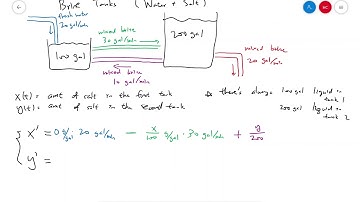 Brine Tanks (Water + Salt)
fresh water
20 gal/min
mixed brine
30 gal/min
100 gal
200 gal
mixed brine
20 gal/min
mixed brine
10 gal/min
x(t) = amt of salt in the first tank
y(t) = amt of salt in the second tank
there's always 100 gal liquid in tank 1
200 gal liquid in tank 2
x' = 0 g/gal · 20 gal/min − x/100 g/gal · 30 gal/min + y/200
y' =